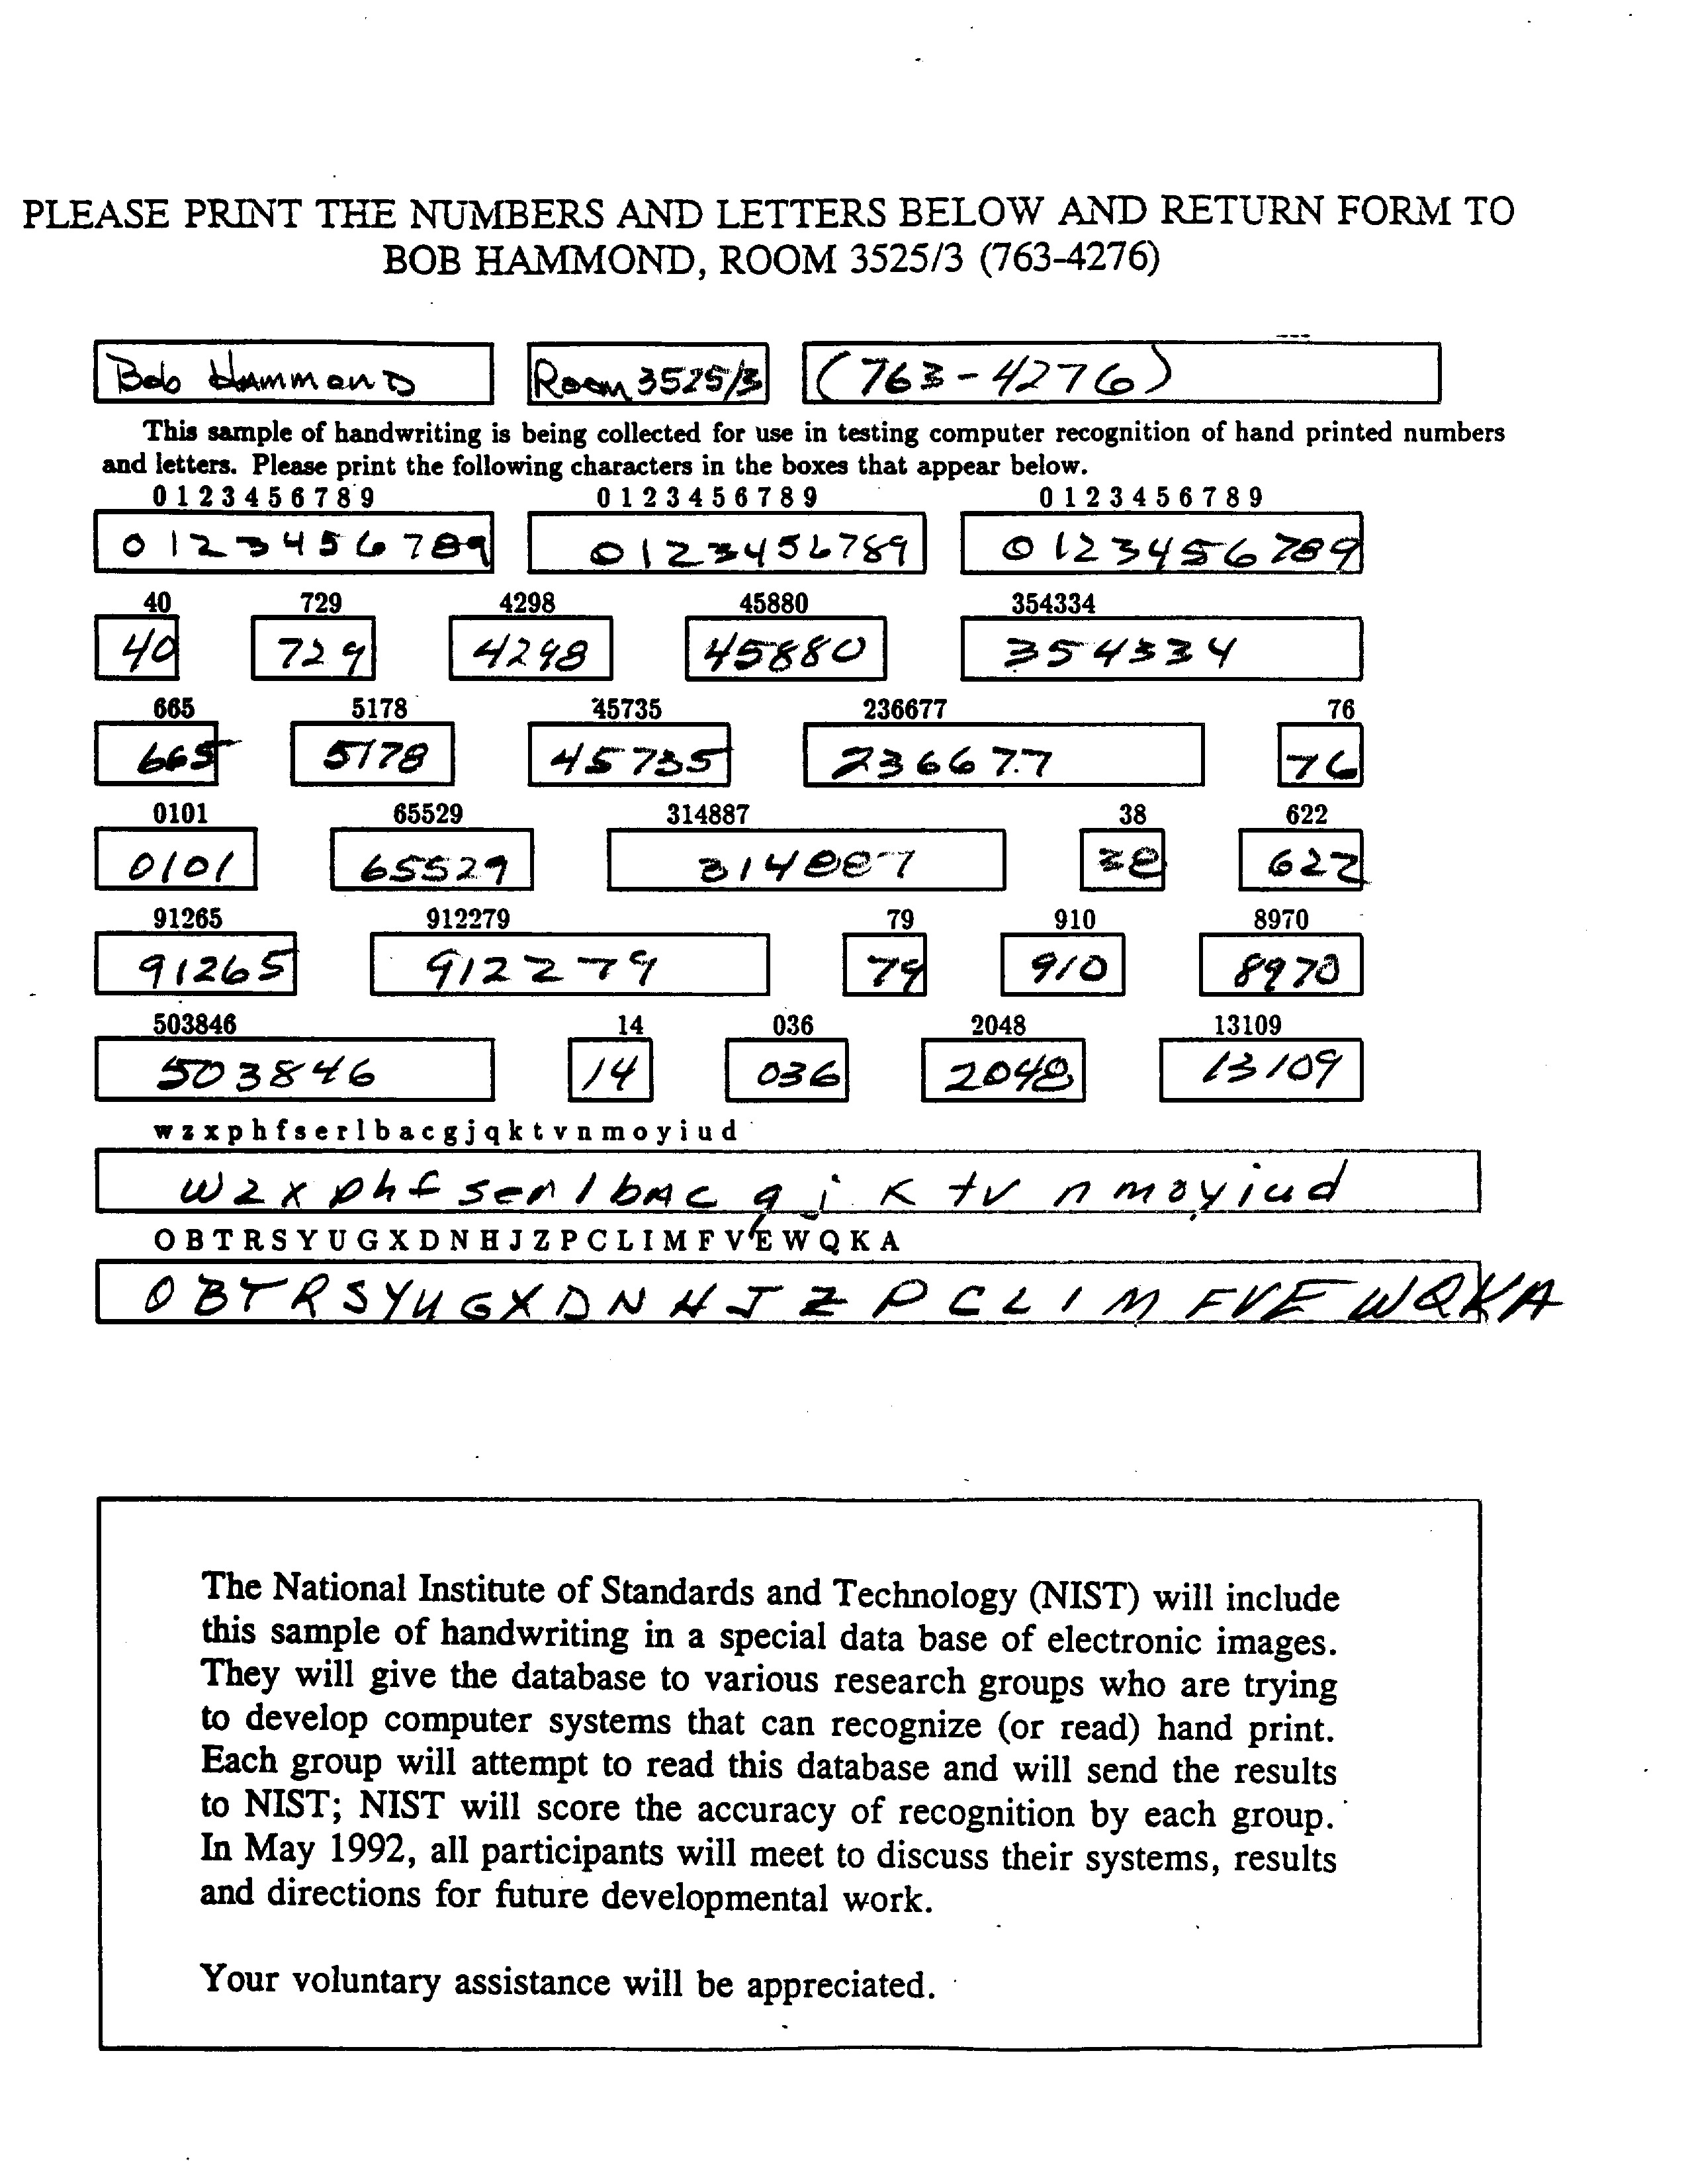 PLEASE PRINT THE NUMBERS AND LETTERS BELOW AND RETURN FORM TO
BOB HAMMOND, ROOM 3525/3 (763-4276)
Bob Hammond Room 3525/3 (763-4276)
This sample of handwriting is being collected for use in testing computer recognition of hand printed numbers
and letters. Please print the following characters in the boxes that appear below.
0 1 2 3 4 5 6 7 8 9 0 1 2 3 4 5 6 7 8 9 0 1 2 3 4 5 6 7 8 9
0123456789 0123456789 0123456789
40 729 4298 45880 354334
40 729 4298 45880 354334
665 5178 45735 236677 76
665 5178 45735 236677 76
0101 65529 314887 38 622
0101 65529 314887 38 622
91265 912279 79 910 8970
91265 912279 79 910 8970
503846 14 036 2048 13109
503846 14 036 2048 13109
w z x p h f s e r l b a c g j q k t v n m o y i u d
w z x p h f s e r l b A c g j K t v n m o y i u d
O B T R S Y U G X D N H J Z P C L I M F V E W Q K A
O B T R S Y U G X D N H J Z P C L I M F V E W Q K A
The National Institute of Standards and Technology (NIST) will include
this sample of handwriting in a special data base of electronic images.
They will give the database to various research groups who are trying
to develop computer systems that can recognize (or read) hand print.
Each group will attempt to read this database and will send the results
to NIST; NIST will score the accuracy of recognition by each group.
In May 1992, all participants will meet to discuss their systems, results
and directions for future developmental work.
Your voluntary assistance will be appreciated.